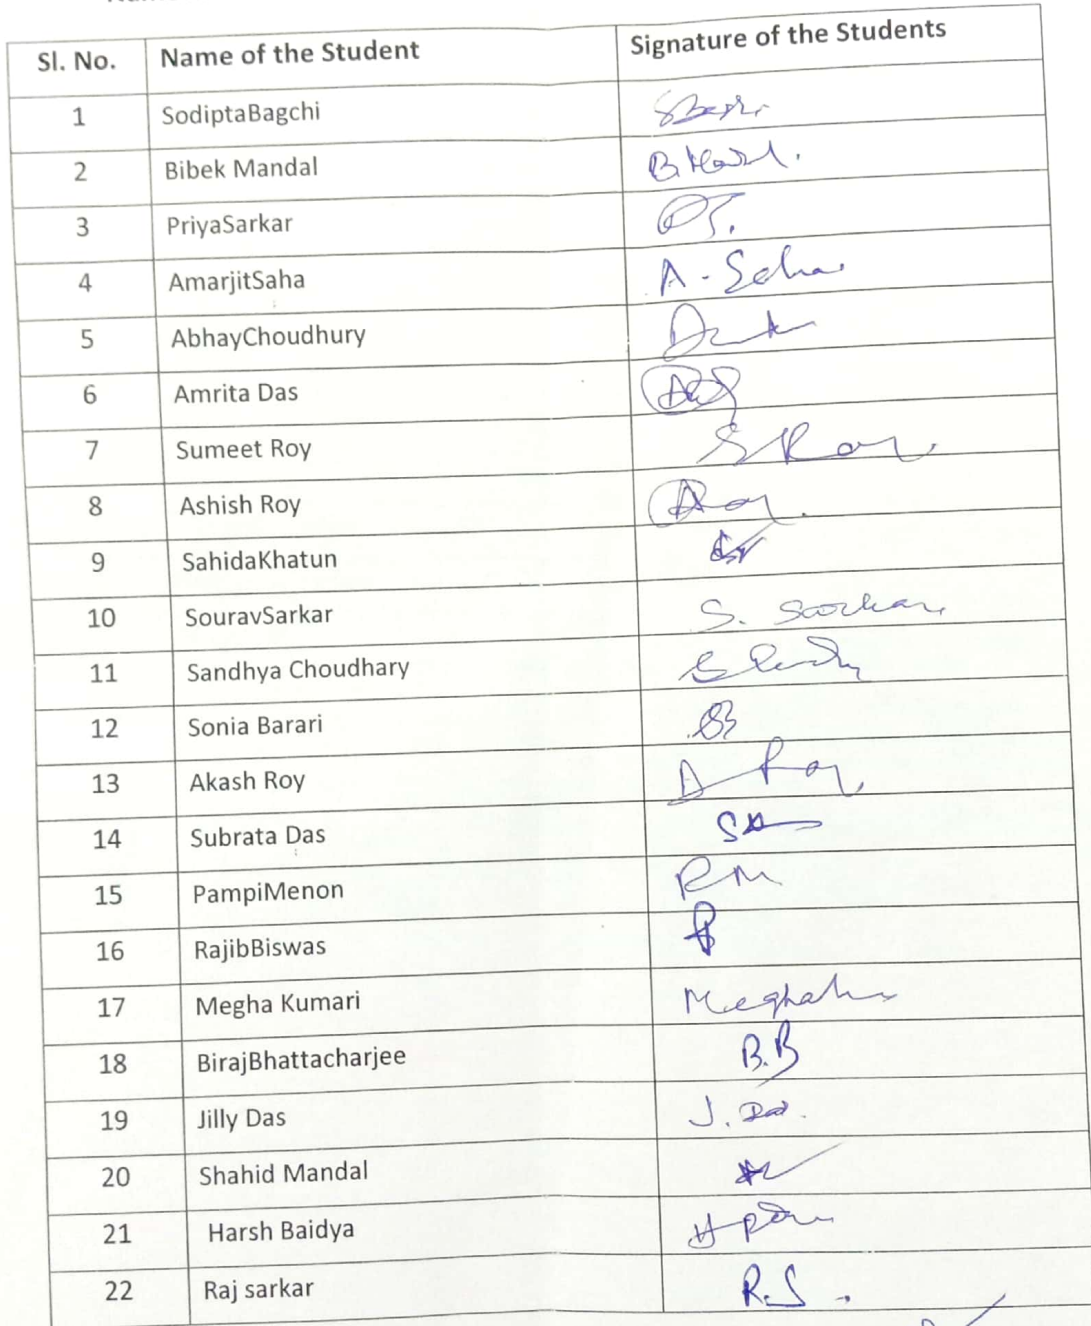 Sl. No. Name of the Student Signature of the Students
1 SodiptaBagchi
2 Bibek Mandal
3 PriyaSarkar
4 AmarjitSaha A - Saha
5 AbhayChoudhury
6 Amrita Das
7 Sumeet Roy S Roy
8 Ashish Roy
9 SahidaKhatun
10 SouravSarkar S. Sarkar
11 Sandhya Choudhary
12 Sonia Barari
13 Akash Roy A Roy
14 Subrata Das
15 PampiMenon PM
16 RajibBiswas
17 Megha Kumari
18 BirajBhattacharjee B.B
19 Jilly Das J. Das.
20 Shahid Mandal
21 Harsh Baidya
22 Raj sarkar R.S.